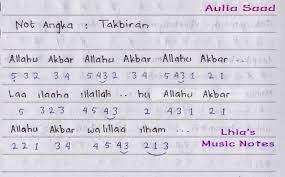 Aulia Saad
Not Angka : Takbiran
Allahu Akbar Allahu Akbar Allahu Akbar
5 3 2 3 4 5 4 3 2 3 4 5 4 3 1 2 1
Laa ilaaha illallah .. hu Allahu Akbar
5 3 2 3 4 5 4 3 2 4 3 1 2 1
Allahu Akbar walillaa ilham ...
2 2 1 3 4 4 5 4 3 2 1 3
Lhia's
Music Notes